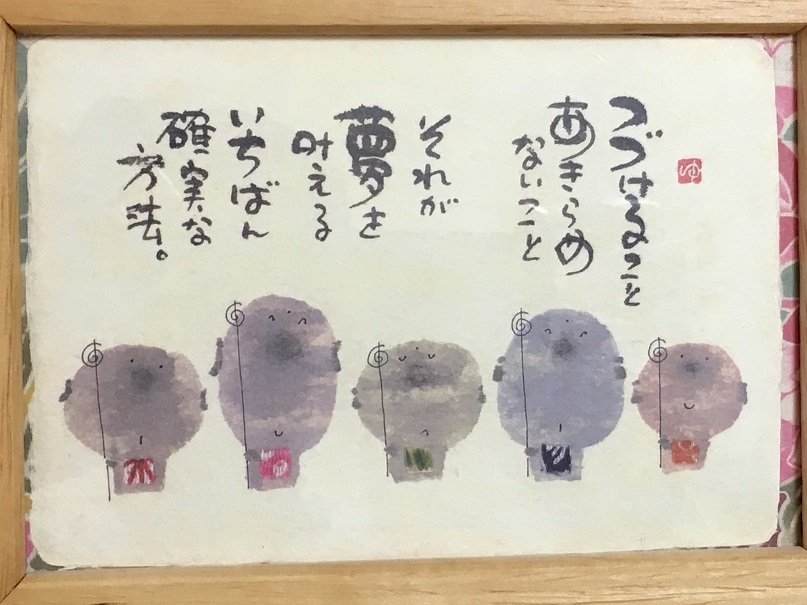 つづけること
あきらめ
ないこと
それが
夢を
叶える
いちばん
確実な
方法。